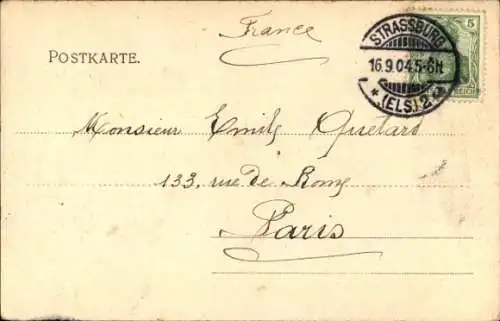 France
POSTKARTE.
STRASSBURG
16.9.04.5-6N
* (ELS.) 2 *
5
REICH
Monsieur Emily Quetard
133, rue de Rome
Paris